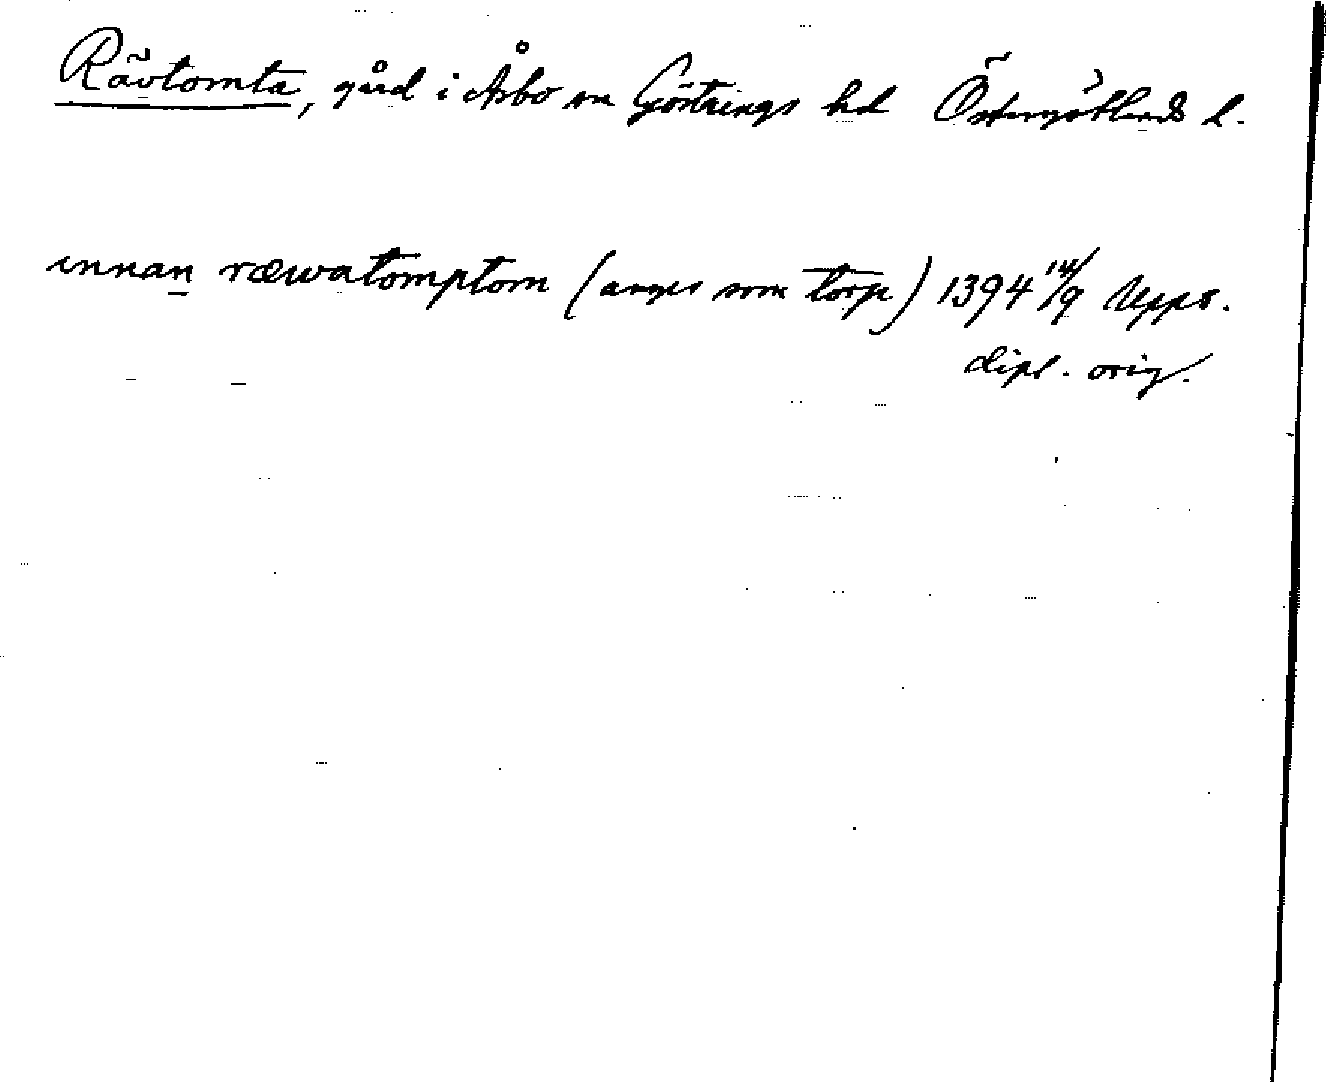 Rävtomta, gård i Åsbo sn Göstrings hd Östergötlands l.
innan ræwatomptom (anges som torp) 1394 14/9 Upps.
dipl. orig.